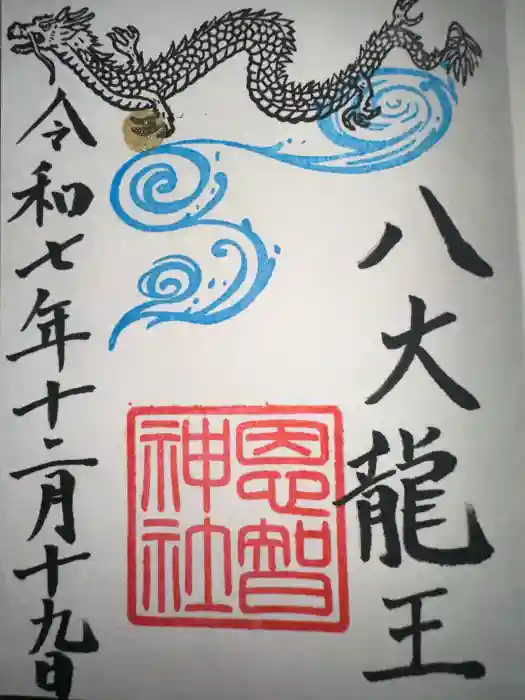 八大龍王
恩智神社
令和七年十二月十九日